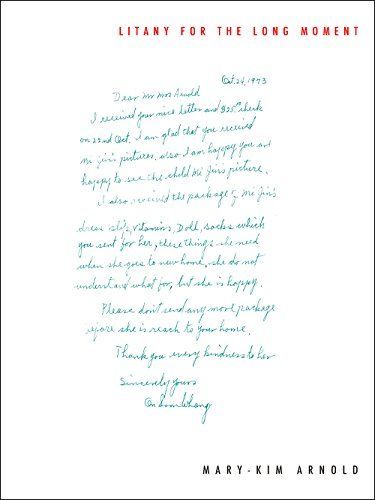 LITANY FOR THE LONG MOMENT
Oct. 24, 1973
Dear Mr Mrs Arnold
I received your nice letter and $25.00 check
on 22nd Oct. I am glad that you received
Mi Jin's pictures, also I am happy you are
happy to see the child Mi Jin's picture.
I also received the package of Mi Jin's
dress slip, vitamins, Doll, socks which
you sent for her, these things she need
when she goes to new home, she do not
understand what for, but she is happy.
Please don't send any more package
efore she is reach to your home.
Thank you every kindness to her
Sincerely yours
MARY-KIM ARNOLD